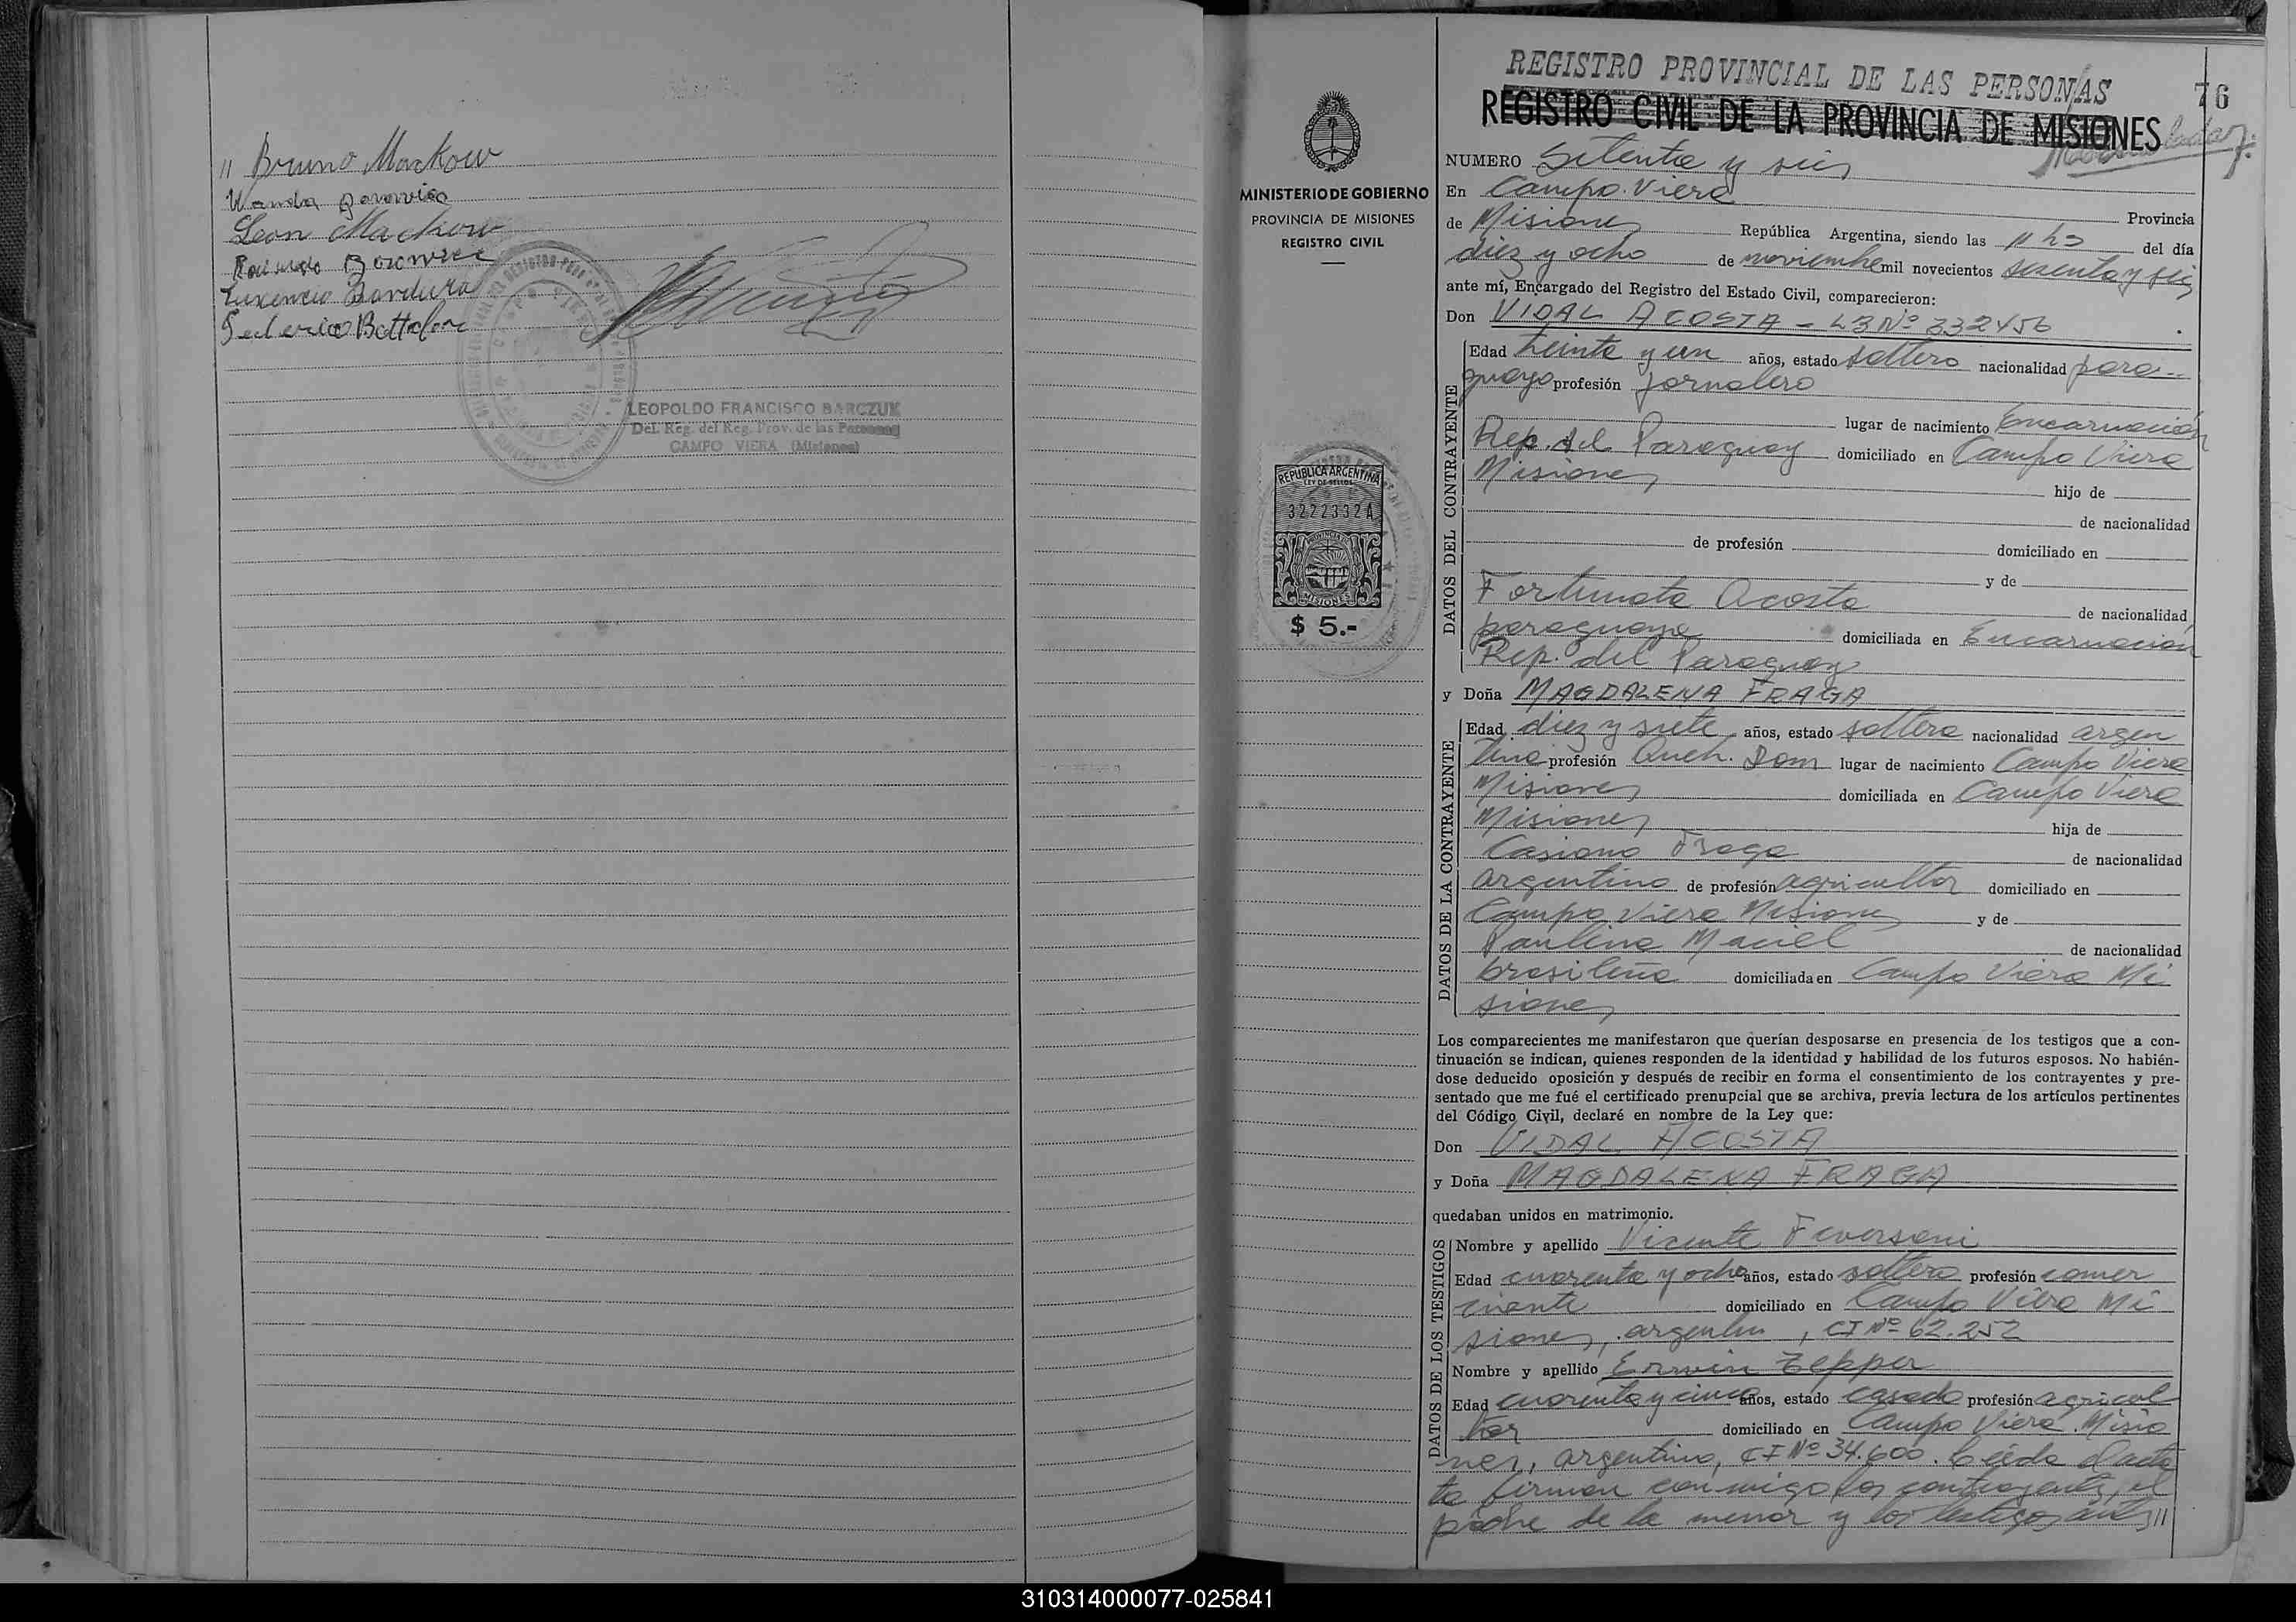 // Bruno Mackow
Wanda
Leon Mackow
Federico
LEOPOLDO FRANCISCO BARCZUK
Del. Reg. del Reg. Prov. de las Personas
CAMPO VIERA (Misiones)
MINISTERIO DE GOBIERNO
PROVINCIA DE MISIONES
REGISTRO CIVIL
REPUBLICA ARGENTINA
LEY DE SELLOS
3222332A
MISIONES
$ 5.-
REGISTRO PROVINCIAL DE LAS PERSONAS
76
REGISTRO CIVIL DE LA PROVINCIA DE MISIONES
NUMERO Setenta y seis
En Campo Viera
Provincia
de Misiones República Argentina, siendo las 11 hs del día
diez y ocho de noviembre mil novecientos sesenta y seis
ante mí, Encargado del Registro del Estado Civil, comparecieron:
Don VIDAL ACOSTA - LB Nº 332456
Edad treinta y un años, estado soltero nacionalidad para-
guayo profesión jornalero
lugar de nacimiento Encarnación
Rep. del Paraguay domiciliado en Campo Viera
Misiones hijo de
de nacionalidad
de profesión domiciliado en
y de
Fortunata Acosta de nacionalidad
paraguaya domiciliada en Encarnación
Rep. del Paraguay
y Doña MAGDALENA FRAGA
Edad diez y siete años, estado soltera nacionalidad argen
tina profesión Queh. Dom lugar de nacimiento Campo Viera
Misiones domiciliada en Campo Viera
Misiones hija de
Casiano Fraga de nacionalidad
argentino de profesión agricultor domiciliado en
Campo Viera Misiones y de
Paulina Maciel de nacionalidad
brasileña domiciliada en Campo Viera Mi
siones
DATOS DEL CONTRAYENTE
DATOS DE LA CONTRAYENTE
Los comparecientes me manifestaron que querían desposarse en presencia de los testigos que a con-
tinuación se indican, quienes responden de la identidad y habilidad de los futuros esposos. No habién-
dose deducido oposición y después de recibir en forma el consentimiento de los contrayentes y pre-
sentado que me fué el certificado prenupcial que se archiva, previa lectura de los artículos pertinentes
del Código Civil, declaré en nombre de la Ley que:
Don VIDAL ACOSTA
y Doña MAGDALENA FRAGA
quedaban unidos en matrimonio.
DATOS DE LOS TESTIGOS
Nombre y apellido Vicente
Edad cuarenta y ocho años, estado soltero profesión comer
ciante domiciliado en Campo Viera Mi
siones, argentino, CI Nº 62.252
Nombre y apellido Erwin Zepper
Edad cuarenta y cinco años, estado casado profesión agricul
tor domiciliado en Campo Viera Misio
nes, argentino, CI Nº 34.600. Leída el acta
la firman conmigo los contrayentes, el
padre de la menor y los testigos antes //
310314000077-025841